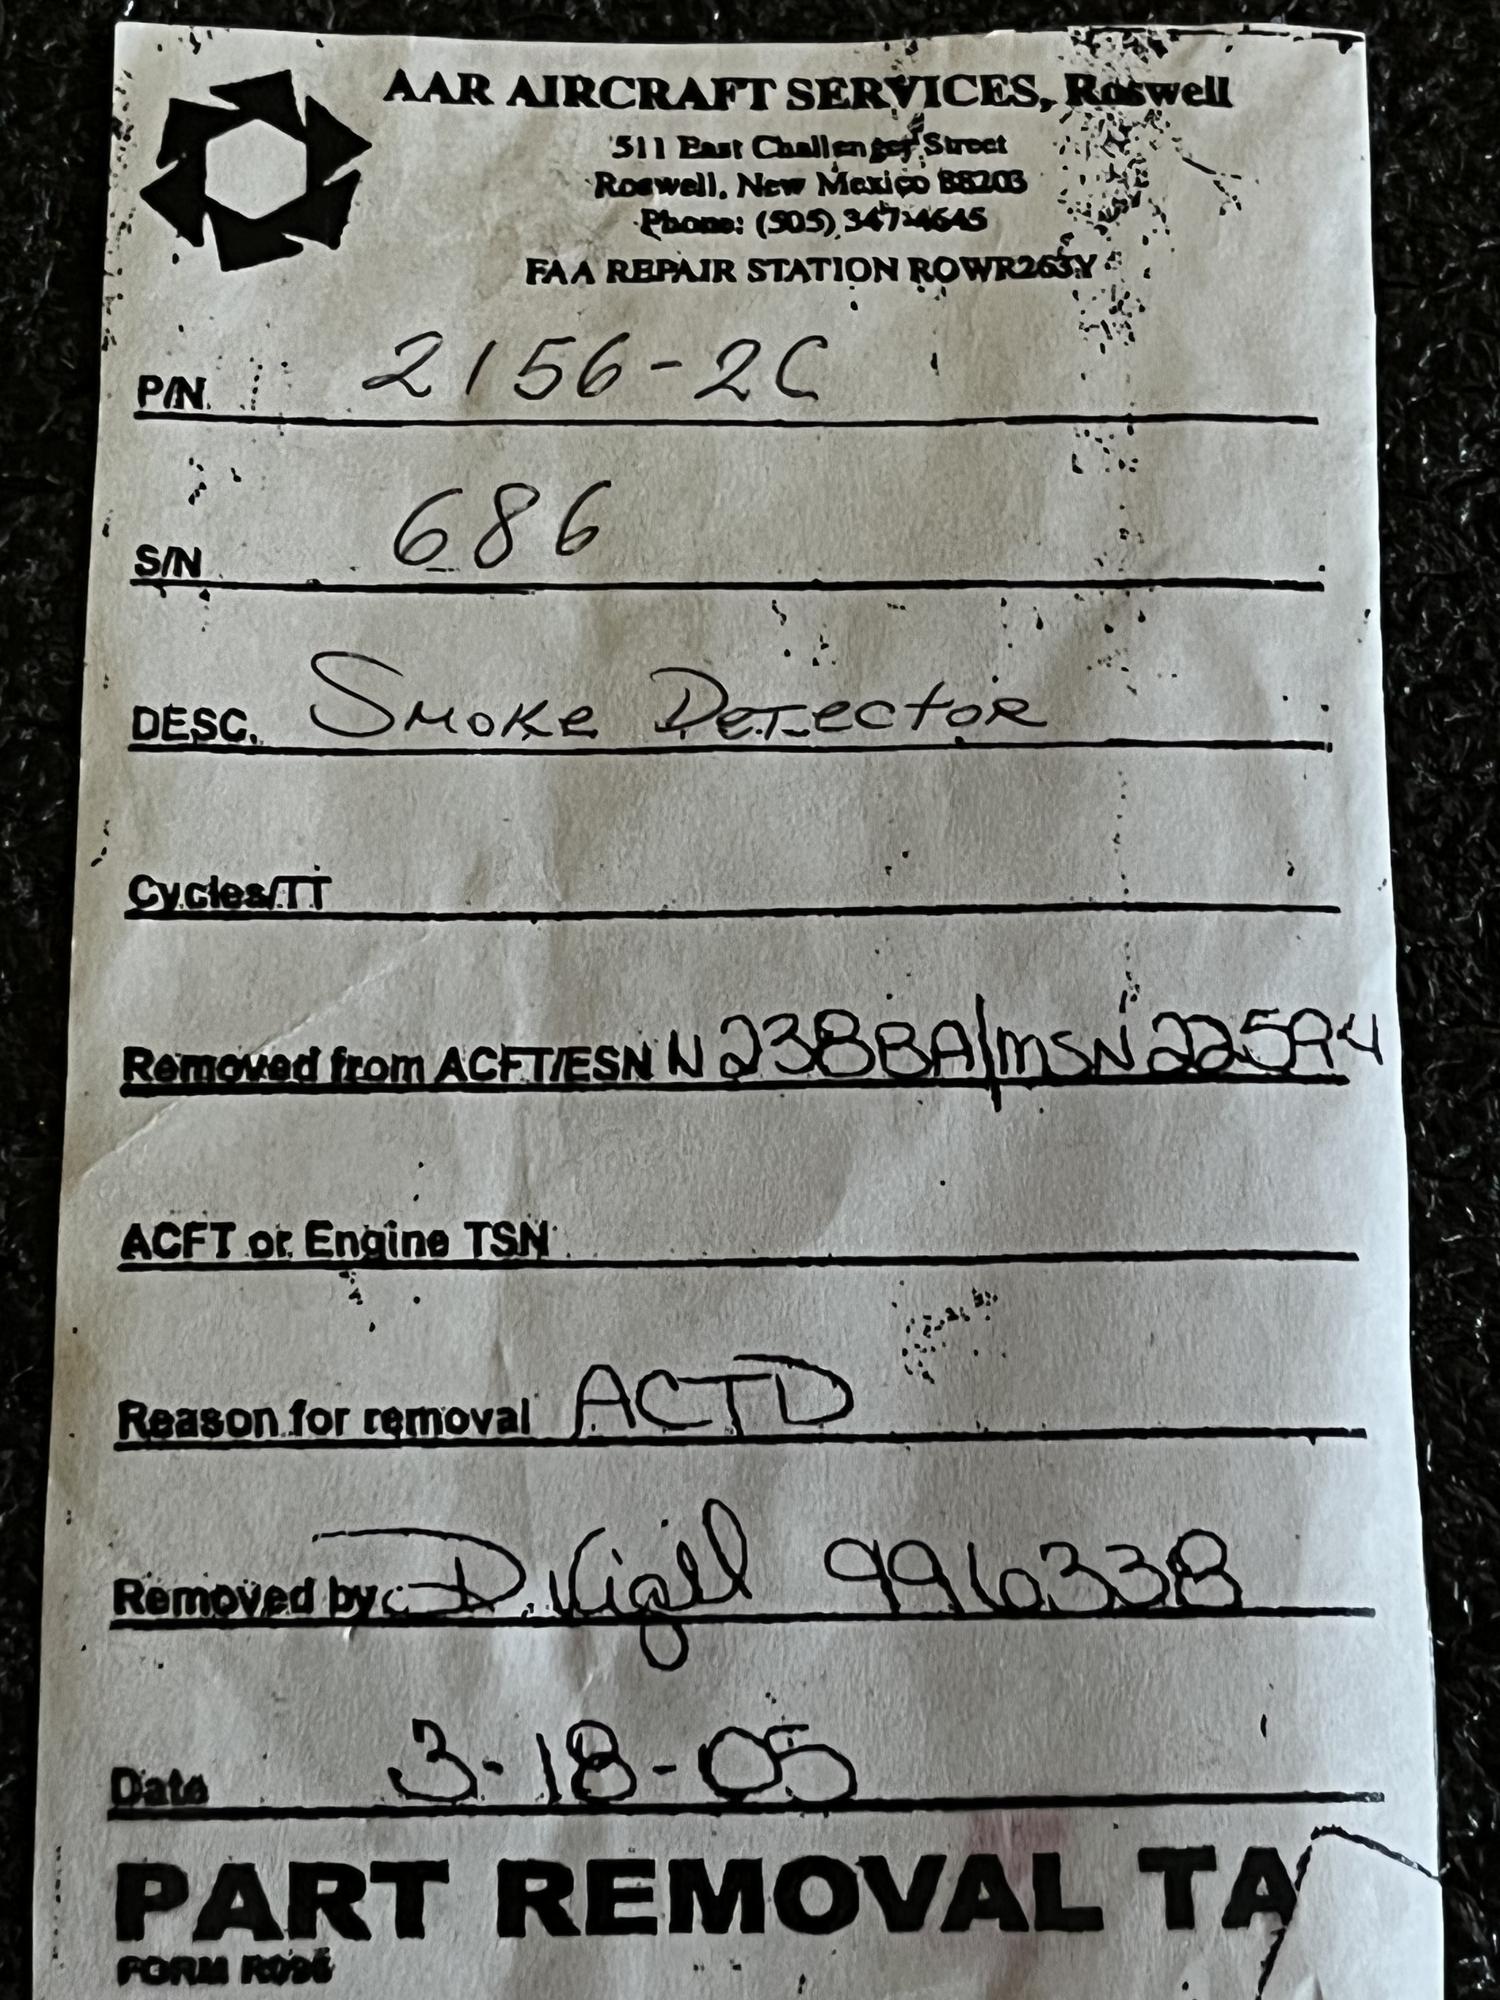 AAR AIRCRAFT SERVICES, Roswell
511 East Challenger Street
Roswell, New Mexico 88203
Phone: (505) 347-4645
FAA REPAIR STATION ROWR263Y
P/N 2156-2C
S/N 686
DESC. Smoke Detector
Cycles/TT
Removed from ACFT/ESN N238BA/MSN 22594
ACFT or Engine TSN
Reason for removal ACTD
Removed by D. Vigil 996338
Date 3-18-05
PART REMOVAL TA
FORM R096